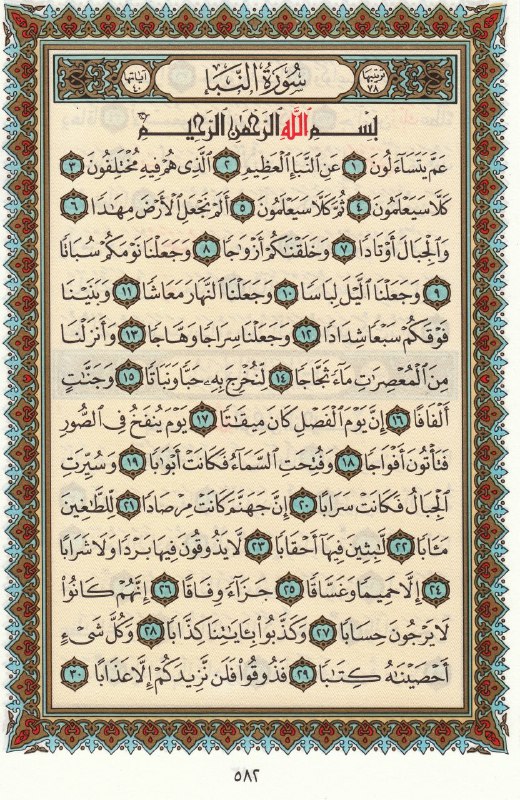 ترتيبها ٧٨ سُورَةُ النَّبَإِ آياتها ٤٠
بِسْمِ ٱللَّهِ ٱلرَّحْمَٰنِ ٱلرَّحِيمِ
عَمَّ يَتَسَآءَلُونَ ١ عَنِ ٱلنَّبَإِ ٱلْعَظِيمِ ٢ ٱلَّذِى هُمْ فِيهِ مُخْتَلِفُونَ ٣
كَلَّا سَيَعْلَمُونَ ٤ ثُمَّ كَلَّا سَيَعْلَمُونَ ٥ أَلَمْ نَجْعَلِ ٱلْأَرْضَ مِهَٰدًا ٦
وَٱلْجِبَالَ أَوْتَادًا ٧ وَخَلَقْنَٰكُمْ أَزْوَٰجًا ٨ وَجَعَلْنَا نَوْمَكُمْ سُبَاتًا
٩ وَجَعَلْنَا ٱلَّيْلَ لِبَاسًا ١٠ وَجَعَلْنَا ٱلنَّهَارَ مَعَاشًا ١١ وَبَنَيْنَا
فَوْقَكُمْ سَبْعًا شِدَادًا ١٢ وَجَعَلْنَا سِرَاجًا وَهَّاجًا ١٣ وَأَنزَلْنَا
مِنَ ٱلْمُعْصِرَٰتِ مَآءً ثَجَّاجًا ١٤ لِّنُخْرِجَ بِهِۦ حَبًّا وَنَبَاتًا ١٥ وَجَنَّٰتٍ
أَلْفَافًا ١٦ إِنَّ يَوْمَ ٱلْفَصْلِ كَانَ مِيقَٰتًا ١٧ يَوْمَ يُنفَخُ فِى ٱلصُّورِ
فَتَأْتُونَ أَفْوَاجًا ١٨ وَفُتِحَتِ ٱلسَّمَآءُ فَكَانَتْ أَبْوَٰبًا ١٩ وَسُيِّرَتِ
ٱلْجِبَالُ فَكَانَتْ سَرَابًا ٢٠ إِنَّ جَهَنَّمَ كَانَتْ مِرْصَادًا ٢١ لِّلطَّٰغِينَ
مَـَٔابًا ٢٢ لَّٰبِثِينَ فِيهَآ أَحْقَابًا ٢٣ لَّا يَذُوقُونَ فِيهَا بَرْدًا وَلَا شَرَابًا
٢٤ إِلَّا حَمِيمًا وَغَسَّاقًا ٢٥ جَزَآءً وِفَاقًا ٢٦ إِنَّهُمْ كَانُوا۟
لَا يَرْجُونَ حِسَابًا ٢٧ وَكَذَّبُوا۟ بِـَٔايَٰتِنَا كِذَّابًا ٢٨ وَكُلَّ شَىْءٍ
أَحْصَيْنَٰهُ كِتَٰبًا ٢٩ فَذُوقُوا۟ فَلَن نَّزِيدَكُمْ إِلَّا عَذَابًا ٣٠
٥٨٢